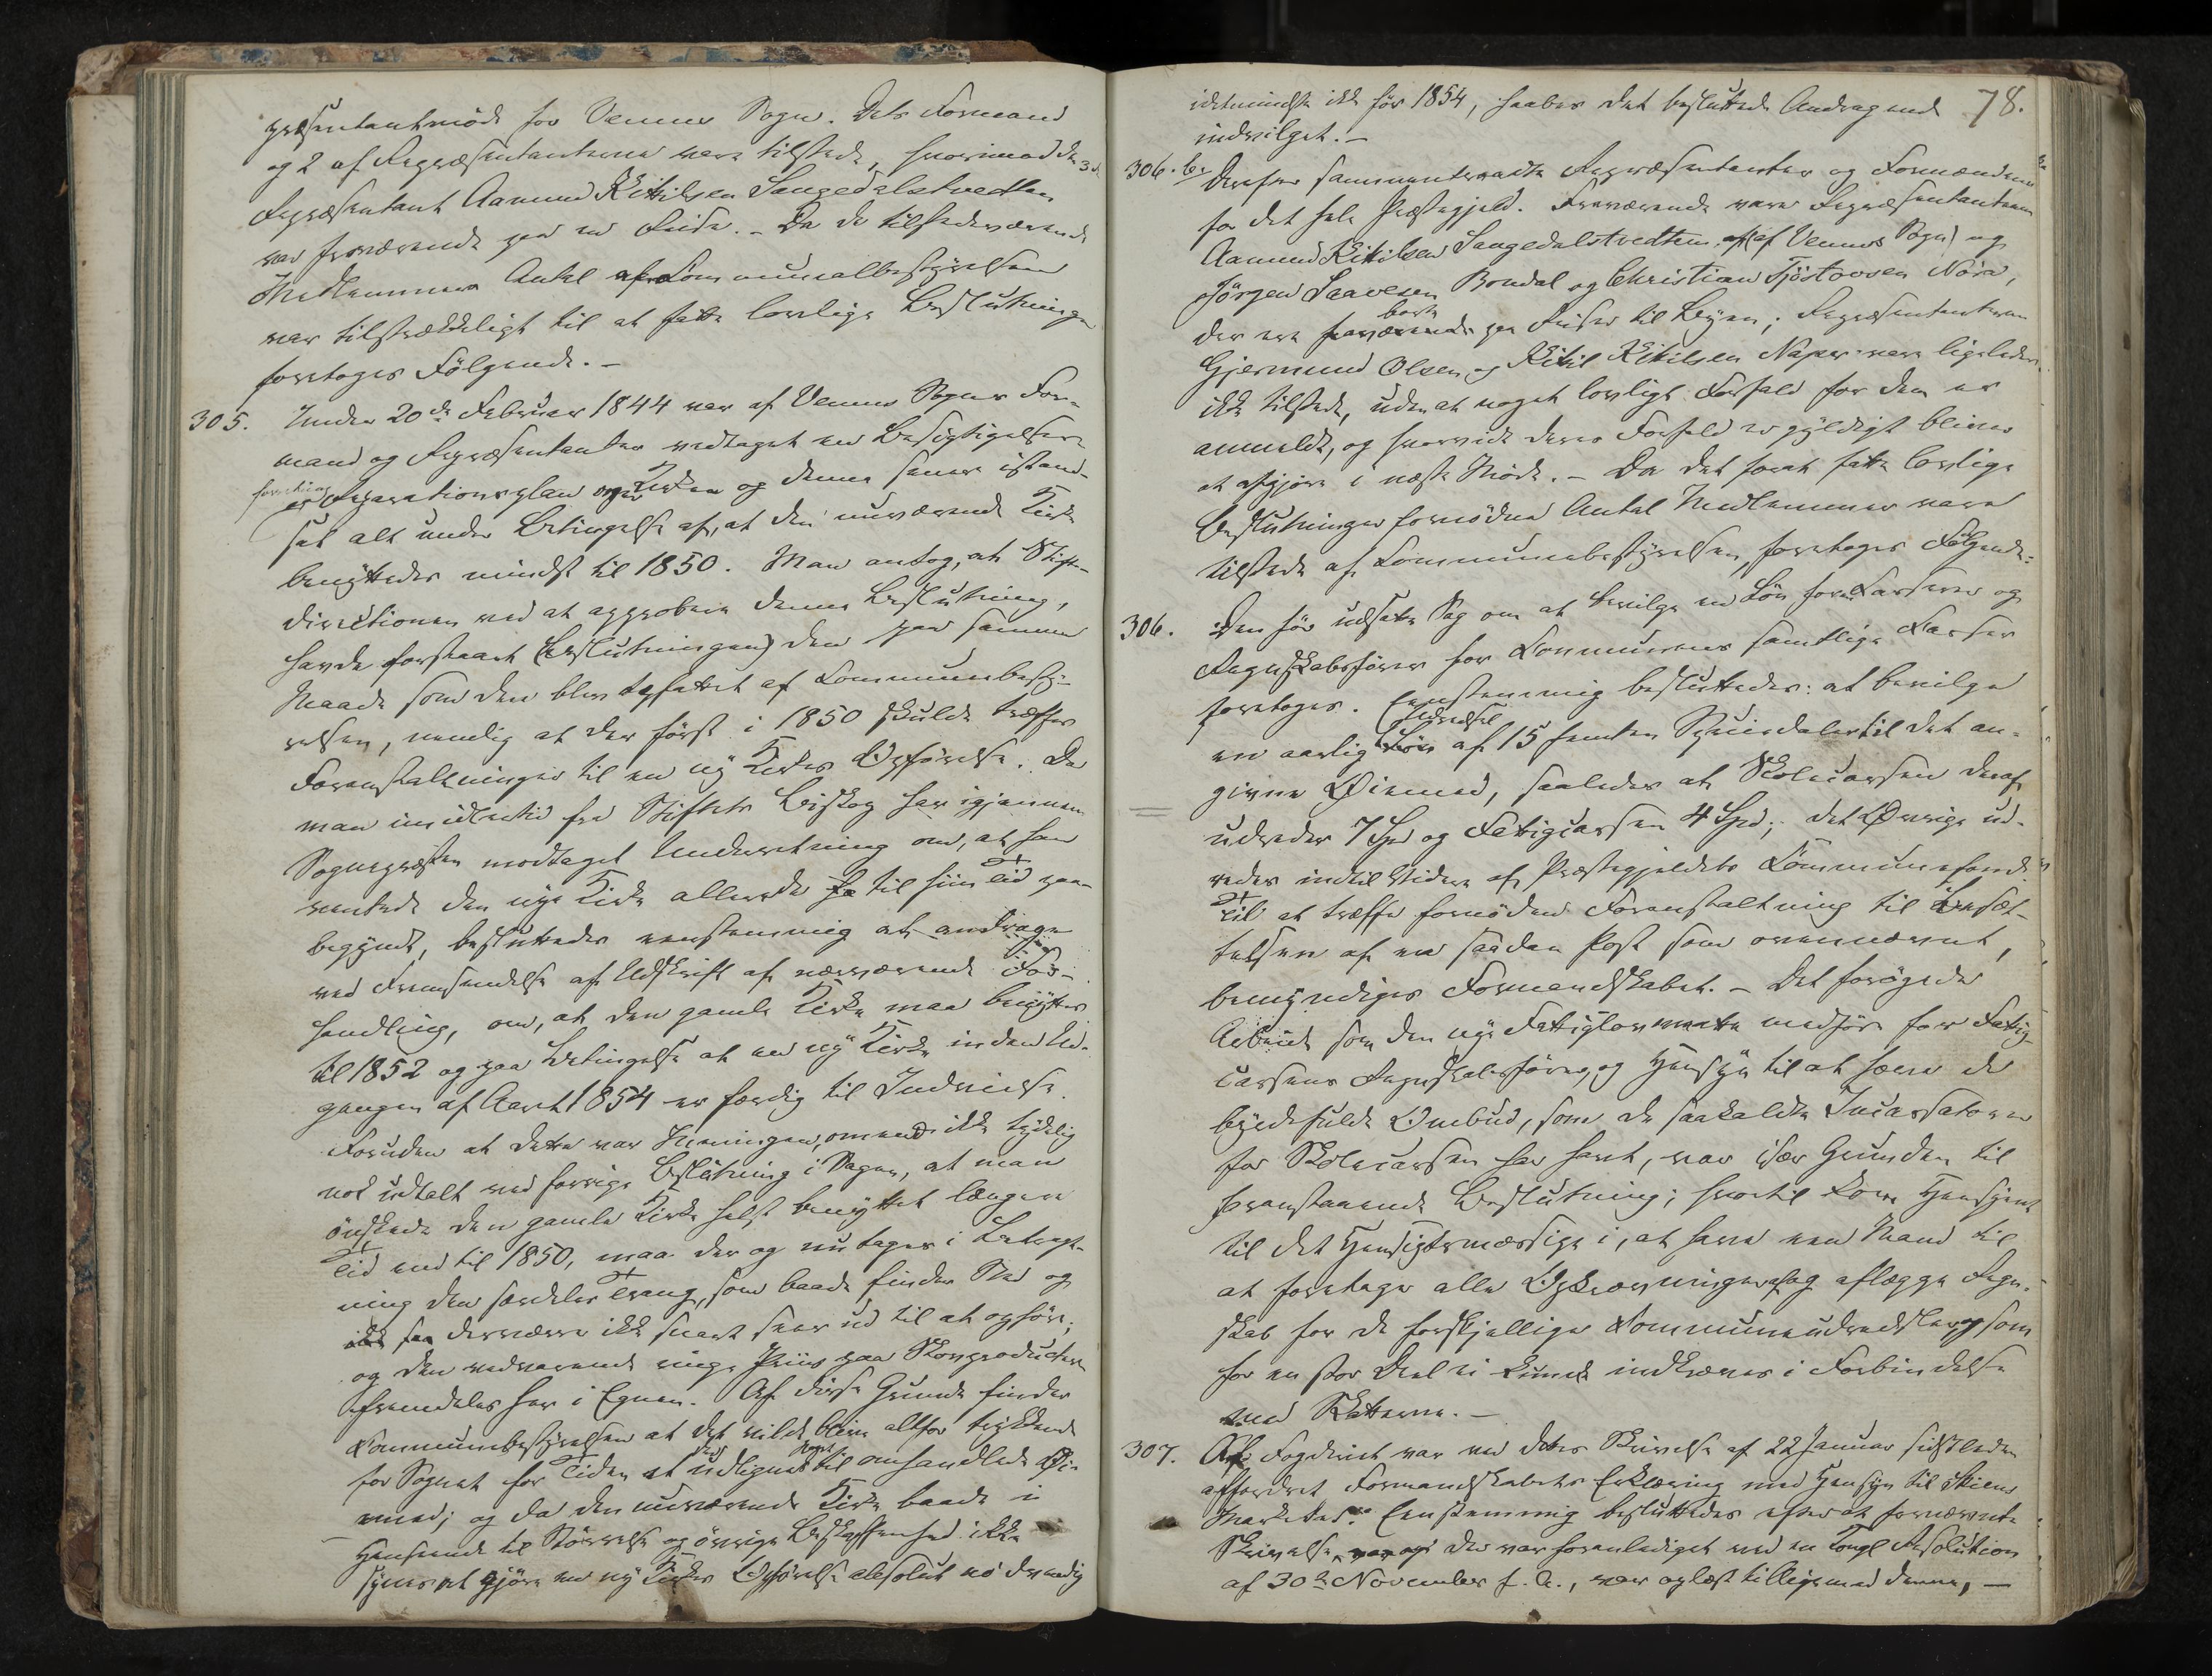 præsentantmöde for Vennes Sogn. Dets Formand
og 2 af Repræsentanterne vare tilstede, hvorimod den 3d.
Repræsentant Aamund Kittilsen Saugedalstvedten
var fraværende paa en Reise. – Da de tilstedeværende
Medlemmers Antal af Communalbestyrelsen
var tilstrækkeligt til at fatte lovlige Beslutninger
foretoges Følgende. –
305. Under 20de Februar 1844 var af Vennes Sogns For-
mand og Repræsentanter vedtaget en Besigtigelsesforretning
og Reparationsplan over Kirken og denne senere istand-
sat alt under Betingelse af, at den nuværende Kirke
benyttedes mindst til 1850. Man antog, at Stift-
directionen ved at approbere denne Beslutning,
havde forstaaet (Beslutningen) den paa samme
Maade som den blev opfattet af Communebesty-
relsen, nemlig at der först i 1850 skulde træffes
Foranstaltninger til en ny Kirkes Opförelse. Da
man imidlertid fra Stiftets Biskop har igjennem
Sognepræsten modtaget Underretning om, at han
ventede den nye Kirke allerede til siin Tid paa-
begyndt, besluttedes eenstemmig at andrage
ved Fremsendelse af Udskrift af nærværende For-
handling, om, at den gamle Kirke maa benyttes
til 1852 og paa Betingelse at en ny Kirke inden Ud-
gangen af Aaret 1854 er færdig til Indvielse.
Foruden at dette var Meningen, omend ikke tydelig
nok udtalt ved forrige Beslutning i Sagen, at man
önskede den gamle Kirke helst benyttet længere
Tid end til 1850, maa der og nu tages i Betragt-
ning den særdeles Trang, som baade finder Sted og
desværre ikke snart seer ud til at ophöre;
og den vedvarende ringe Priis paa Skovproducter
fremdeles her i Egnen. Af disse Grunde finder
Communebestyrelsen at det vilde blive altfor trykkende
for Sognet for Tiden at udlignes til omhandlede Øi-
emed; og da den nuværende Kirke baade i
Henseende til Störrelse og övrige Beskaffenhed ikke
synes at gjöre en ny Kirkes Opförelse absolut nödvendig
78.
idetmindste ikke för 1854, haabes det besluttede Andragende
indvilget. –
306. b. Derefter sammentraadte Repræsentanter og Formændene
for det hele Præstegjeld. Fraværende vare Repræsentanterne
Aamund Kittilsen Saugedalstvedten (af Vennes Sogn) og
Jörgen Saavesen Bondal og Christian Tjöstovsen Nöra,
der ere borte paa Reiser til Byen; Repræsentanterne
Gjermund Olsen og Kittil Kittilsen Naper vare ligeledes
ikke tilstede, uden at noget lovligt Forfald for dem er
anmeldt, og hvorvidt deres Forfald er gyldigt bliver
at afgjöre i næste Möde. – Da det for at fatte lovlige
Beslutninger fornödne Antal Medlemmer vare
tilstede af Communebestyrelsen, foretoges Fölgende:
306. Den för udsatte Sag om at bevilge en Lön for Kasserer og
Regnskabsförer for Communens samtlige Kasser
foretoges. Eenstemmig besluttedes: at bevilge
en aarlig Udredsel af 15 femten Speciedaler til det an-
givne Øiemed, saaledes at Skolecassen deraf
udreder 7 Spd og Fattigcassen 4 Spd; det Øvrige ud-
redes indtil Videre af Præstegjeldets Communefond.
Til at træffe fornöden Foranstaltning til Besæt-
telsen af en saadan Post som ovennævnt,
bemyndiges Formandskabet. – Det forögede
Arbeide som den nye Fattiglov medförer for Fattig-
cassens Regnskabsförer, og Hensyn til at hæve de
byrdefulde Ombud, som de saakaldte Incassatorer
for Skolecassen har havt, var især Grunden til
foranstaaende Beslutning; hvortil kom Hensynet
til det Hensigtsmæssige i, at have een Mand til
at foretage alle Opkrævninger og aflægge Regn-
skab for de forskjellige Communeudredsler som
for en stor Deel ei kunde indkræves i Forbindelse
med Skatterne. –
307. Af Fogderiet var ved dets Skrivelse af 22 Januar sidstleden
affordret Formandskabets Erklæring med Hensyn til Skiens
Markeder. Eenstemmig besluttedes efterat fornævnte
Skrivelse, der var foranlediget ved en Kongl Resolution
af 30te November f. A., var oplæst tilligemed denne, –